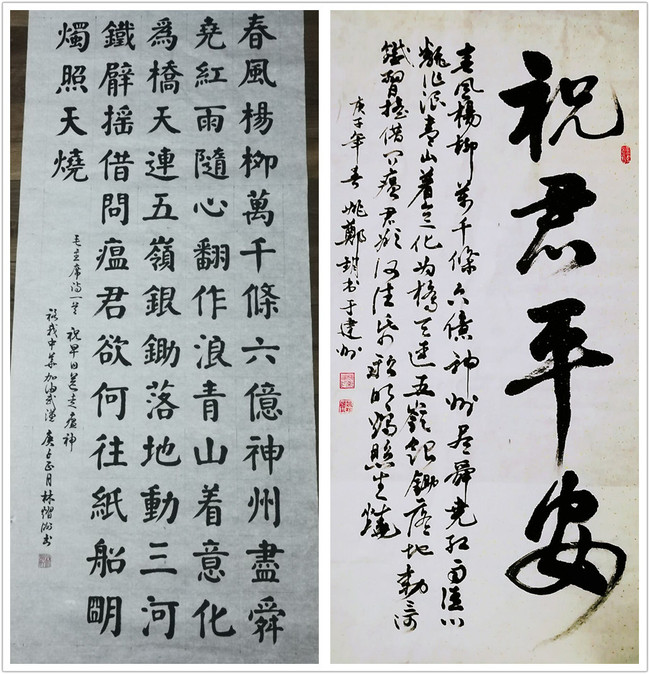 春風楊柳萬千條六億神州盡舜
堯紅雨隨心翻作浪青山着意化
為橋天連五嶺銀鋤落地動三河
鐵臂摇借問瘟君欲何往紙船明
燭照天燒
毛主席诗一首 祝早日送走瘟神
祝我中华加油武汉 庚子正月 林熠书
祝君平安
春風楊柳萬千條六億神州尽舜堯红雨随心
翻作浪青山着意化为橋天连五嶺银鋤落地动三河
鐵臂摇借问瘟君欲何往纸船明烛照天烧
庚子年春 姚鄭 书于建州